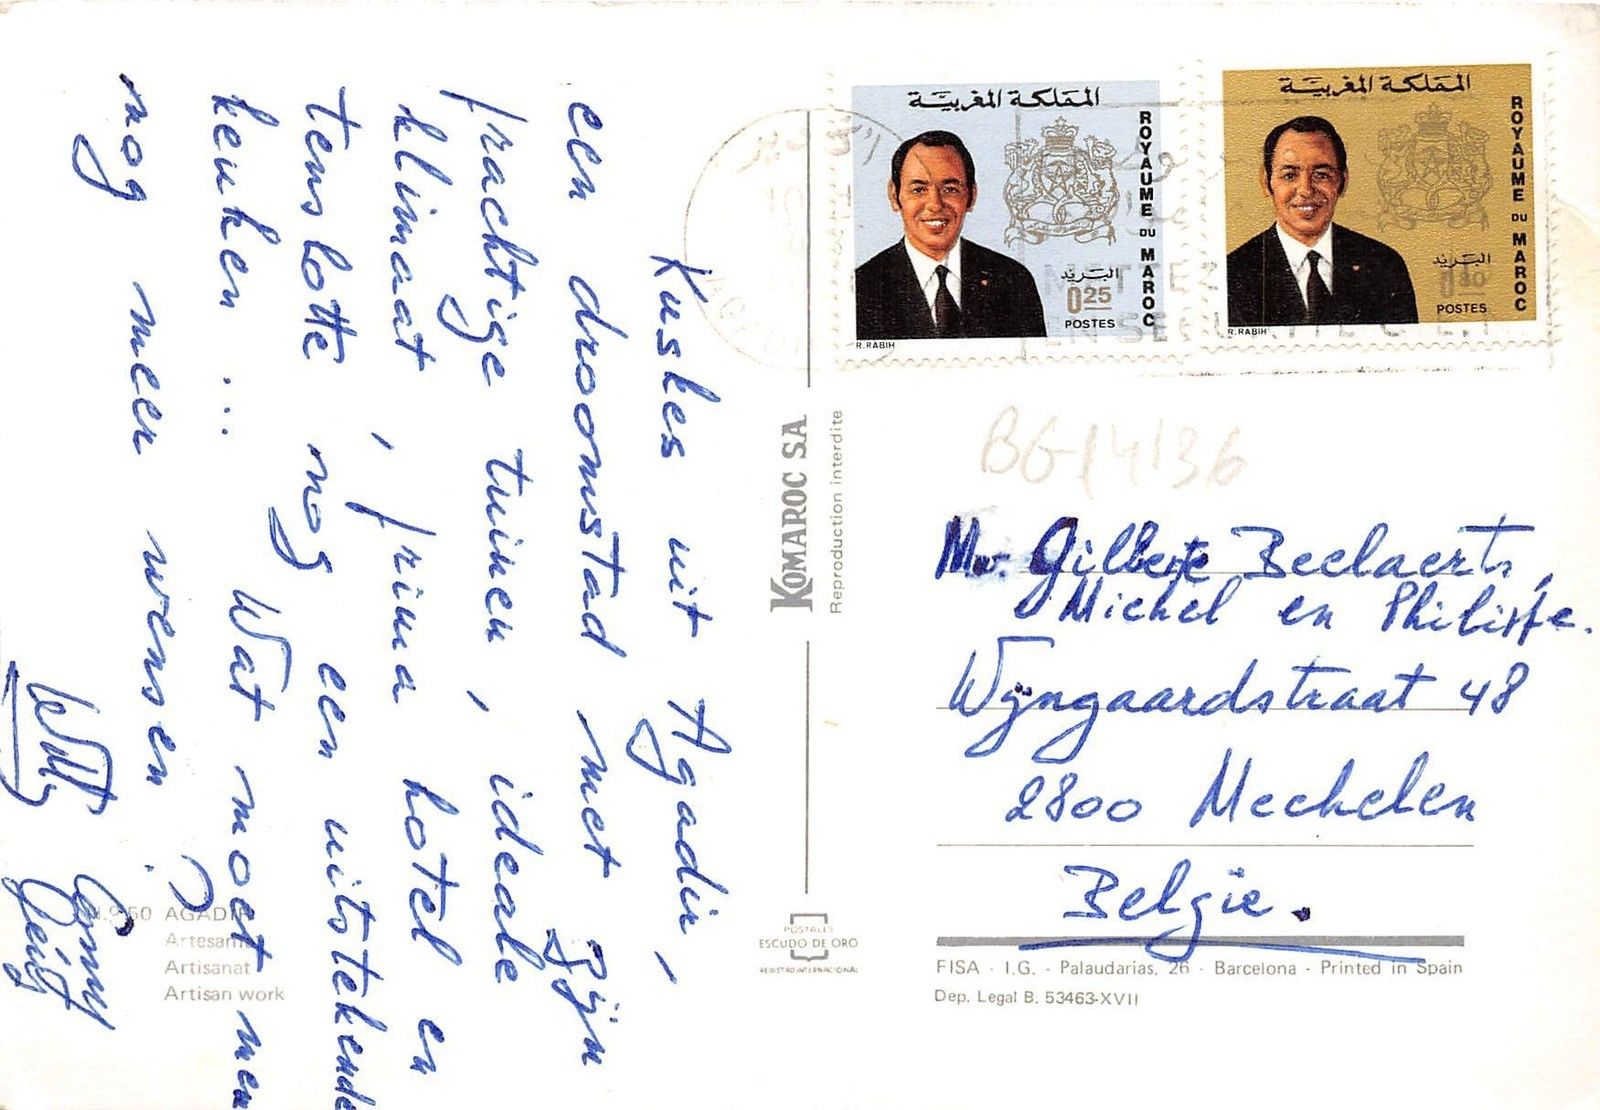 Kuskes uit Agadir,
een droomstad met zijn
prachtige tuinen, ideale
klimaat, prima hotel en
tenslotte nog een uitstekende
keuken... Wat moet men
nog meer wensen?
Willy
AGADIR
Artesanía
Artisanat
Artisan work
KOMAROC SA
Reproduction interdite
POSTALES
ESCUDO DE ORO
REGISTRO INTERNACIONAL
المملكة المغربية
ROYAUME DU MAROC
البريد
0.25
POSTES
R.RABIH
المملكة المغربية
ROYAUME DU MAROC
البريد
POSTES
R.RABIH
BG14136
Gilberte Beelaerts,
Michel en Philippe.
Wijngaardstraat 48
2800 Mechelen
België.
FISA - I.G. - Palaudarias, 26 - Barcelona - Printed in Spain
Dep. Legal B. 53463-XVII